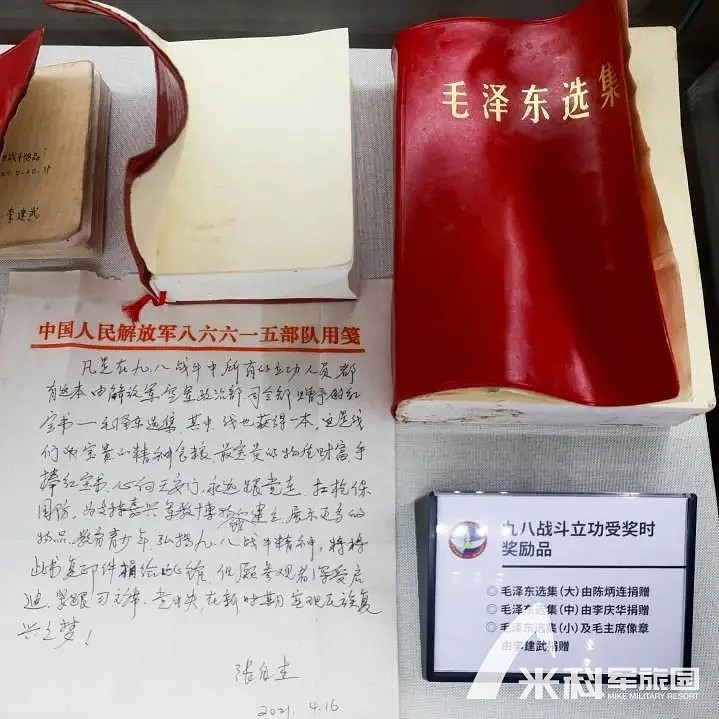 毛泽东选集
李建武
中国人民解放军八六六一五部队用笺
凡是在九.八战斗中所有的立功人员都
有这本由解放军空军政治部司令部赠予的红
宝书—毛泽东选集 其中我也获得一本.这是我
们的宝贵的精神食粮.最宝贵的物质财富手
捧红宝书.心向天安门.永远跟党走.扛枪保
国防.为支持嘉兴军教博物馆建立.展示更多的
物品.教育青少年 弘扬九.八战斗精神,将将
此书复印件捐给此馆 但愿参观者 享受启
迪.紧跟习主席.党中央在新时期实现民族复
兴之梦!
2021. 4.16
九八战斗立功受奖时
奖励品
◎毛泽东选集(大)由陈炳连捐赠
◎毛泽东选集(中)由李庆华捐赠
◎毛泽东选集(小)及毛主席像章
由李建武捐赠
米科军旅园
MIKE MILITARY RESORT